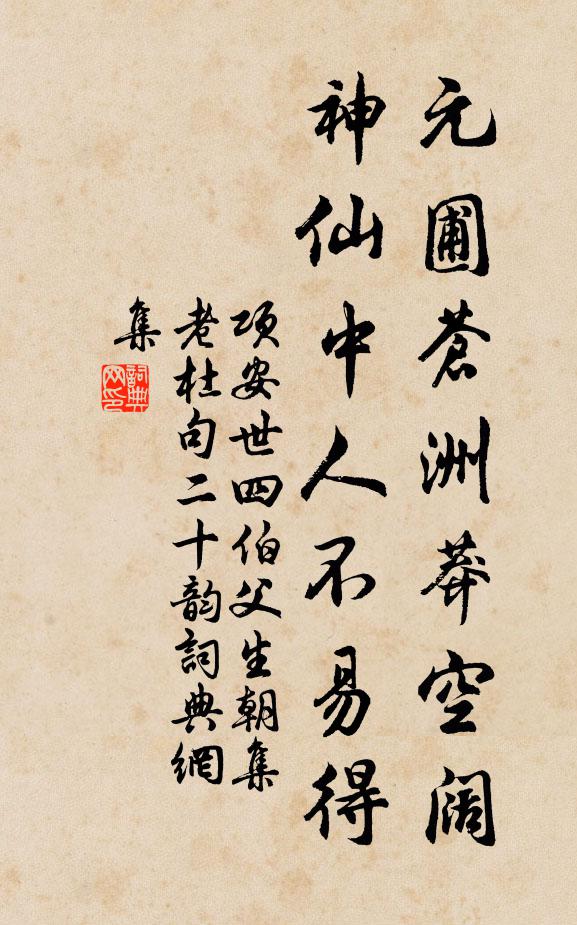 元圃蒼洲莽空阔
神仙中人不易得
项安世四伯父生朝集
老杜句二十韵詞典網
集
詞典
网印